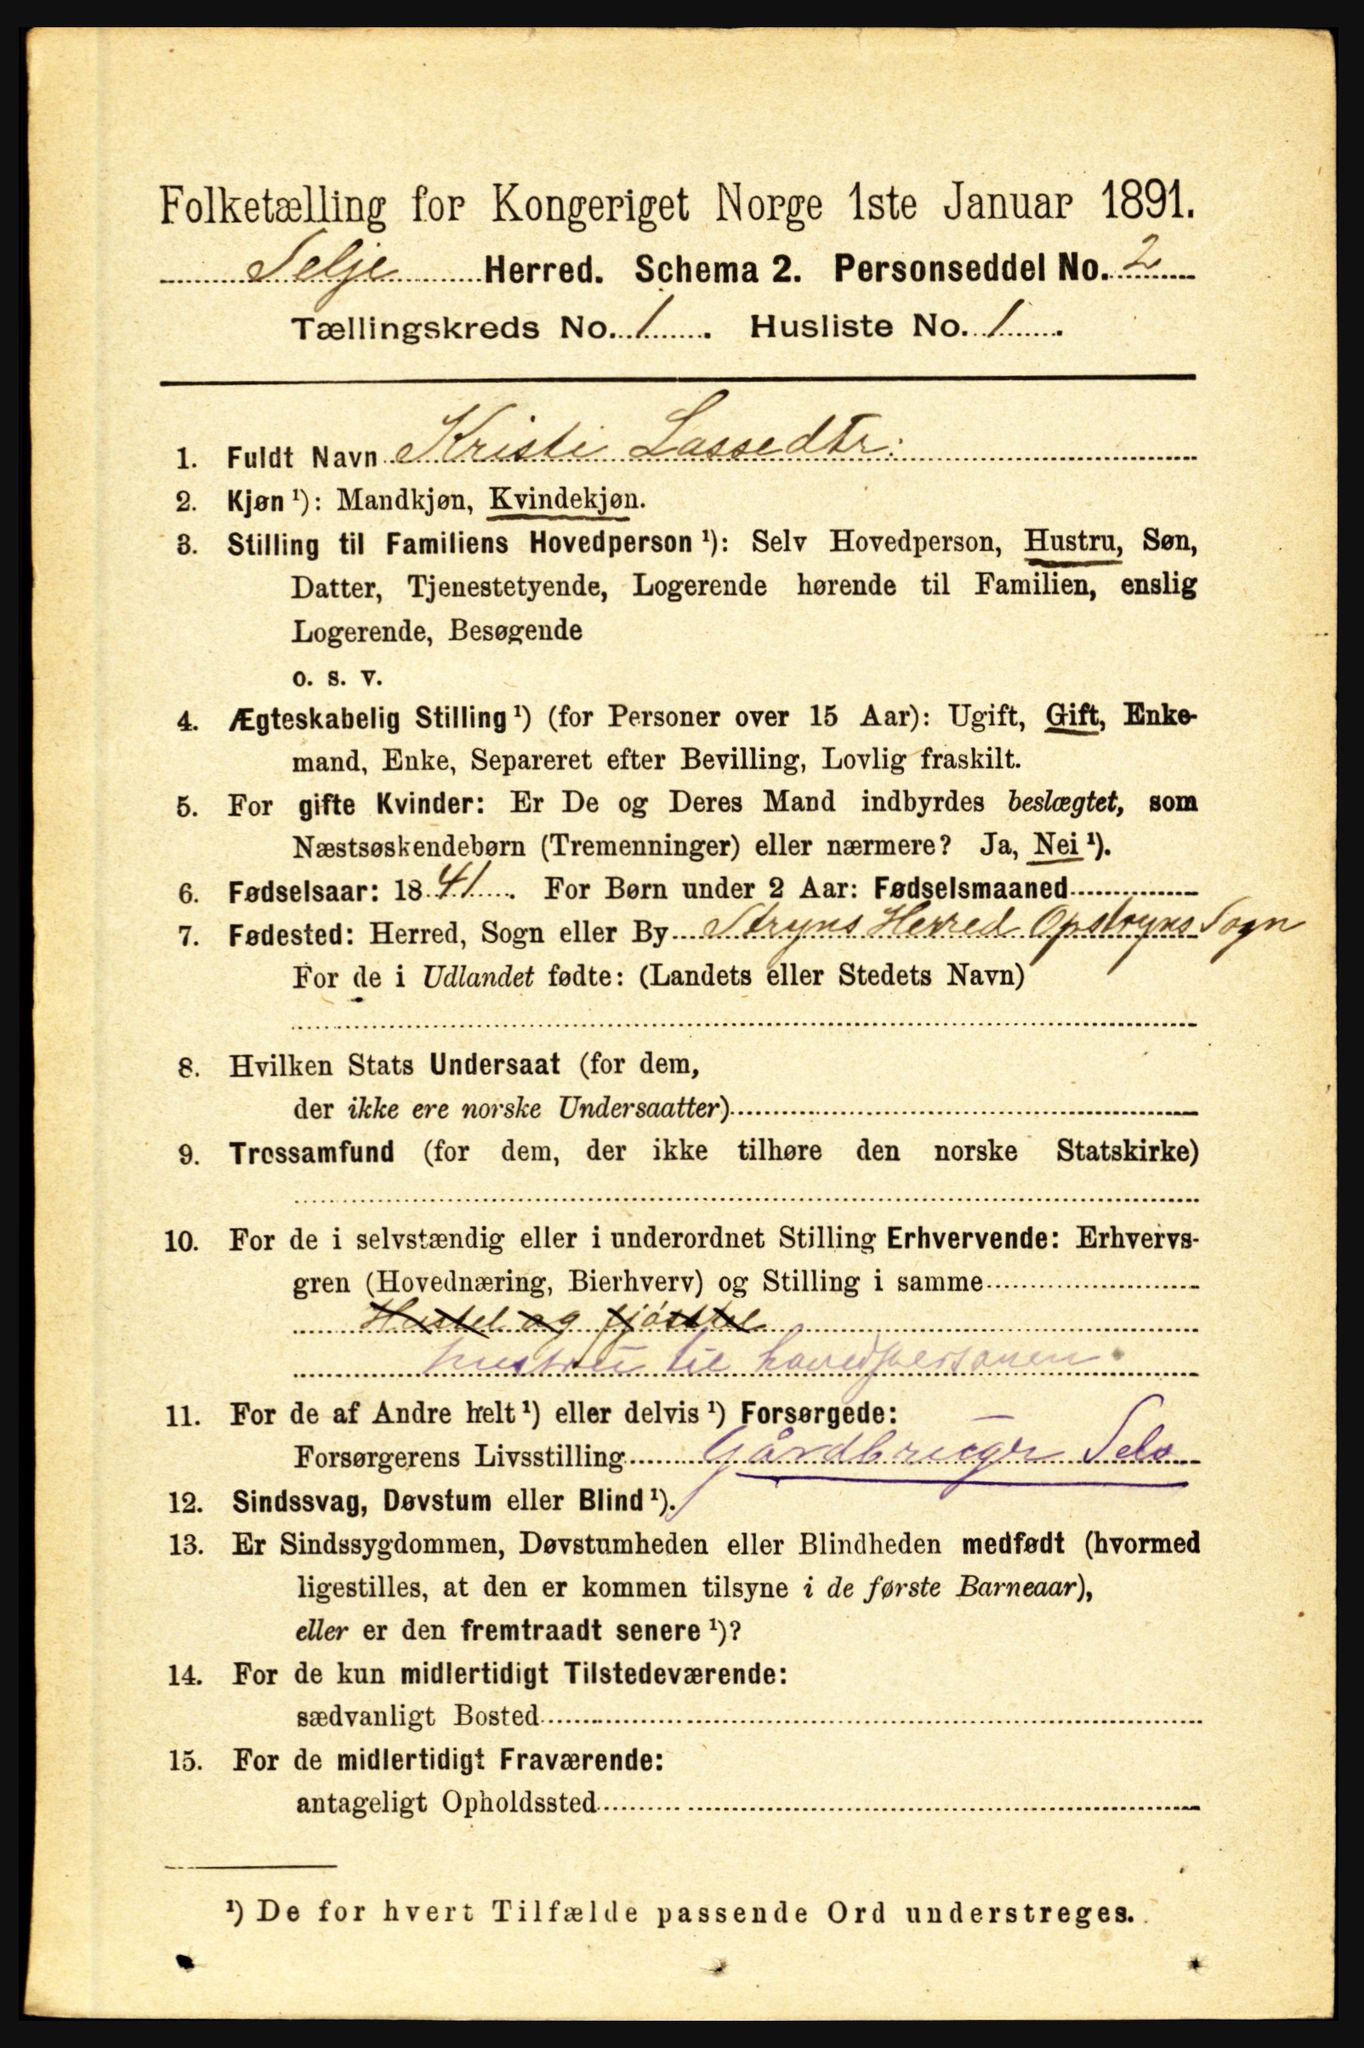 Folketælling for Kongeriget Norge 1ste Januar 1891.
Selje Herred. Schema 2. Personseddel No. 2
Tællingskreds No. 1. Husliste No. 1.
1. Fuldt Navn Kristi Lassedtr:
2. Kjøn ¹): Mandkjøn, Kvindekjøn.
3. Stilling til Familiens Hovedperson ¹): Selv Hovedperson, Hustru, Søn,
Datter, Tjenestetyende, Logerende hørende til Familien, enslig
Logerende, Besøgende
o. s. v.
4. Ægteskabelig Stilling ¹) (for Personer over 15 Aar): Ugift, Gift, Enke-
mand, Enke, Separeret efter Bevilling, Lovlig fraskilt.
5. For gifte Kvinder: Er De og Deres Mand indbyrdes beslægtet, som
Næstsøskendebørn (Tremenninger) eller nærmere? Ja, Nei ¹).
6. Fødselsaar: 1841. For Børn under 2 Aar: Fødselsmaaned
7. Fødested: Herred, Sogn eller By Stryns Herred Opstryns Sogn
For de i Udlandet fødte: (Landets eller Stedets Navn)
8. Hvilken Stats Undersaat (for dem,
der ikke ere norske Undersaatter)
9. Trossamfund (for dem, der ikke tilhøre den norske Statskirke)
10. For de i selvstændig eller i underordnet Stilling Erhvervende: Erhvervs-
gren (Hovednæring, Bierhverv) og Stilling i samme
Hustel og fjøstel
hustru til hovedpersonen
11. For de af Andre helt ¹) eller delvis ¹) Forsørgede:
Forsørgerens Livsstilling Gårdbruger Selv
12. Sindssvag, Døvstum eller Blind ¹).
13. Er Sindssygdommen, Døvstumheden eller Blindheden medfødt (hvormed
ligestilles, at den er kommen tilsyne i de første Barneaar),
eller er den fremtraadt senere ¹)?
14. For de kun midlertidigt Tilstedeværende:
sædvanligt Bosted
15. For de midlertidigt Fraværende:
antageligt Opholdssted
¹) De for hvert Tilfælde passende Ord understreges.